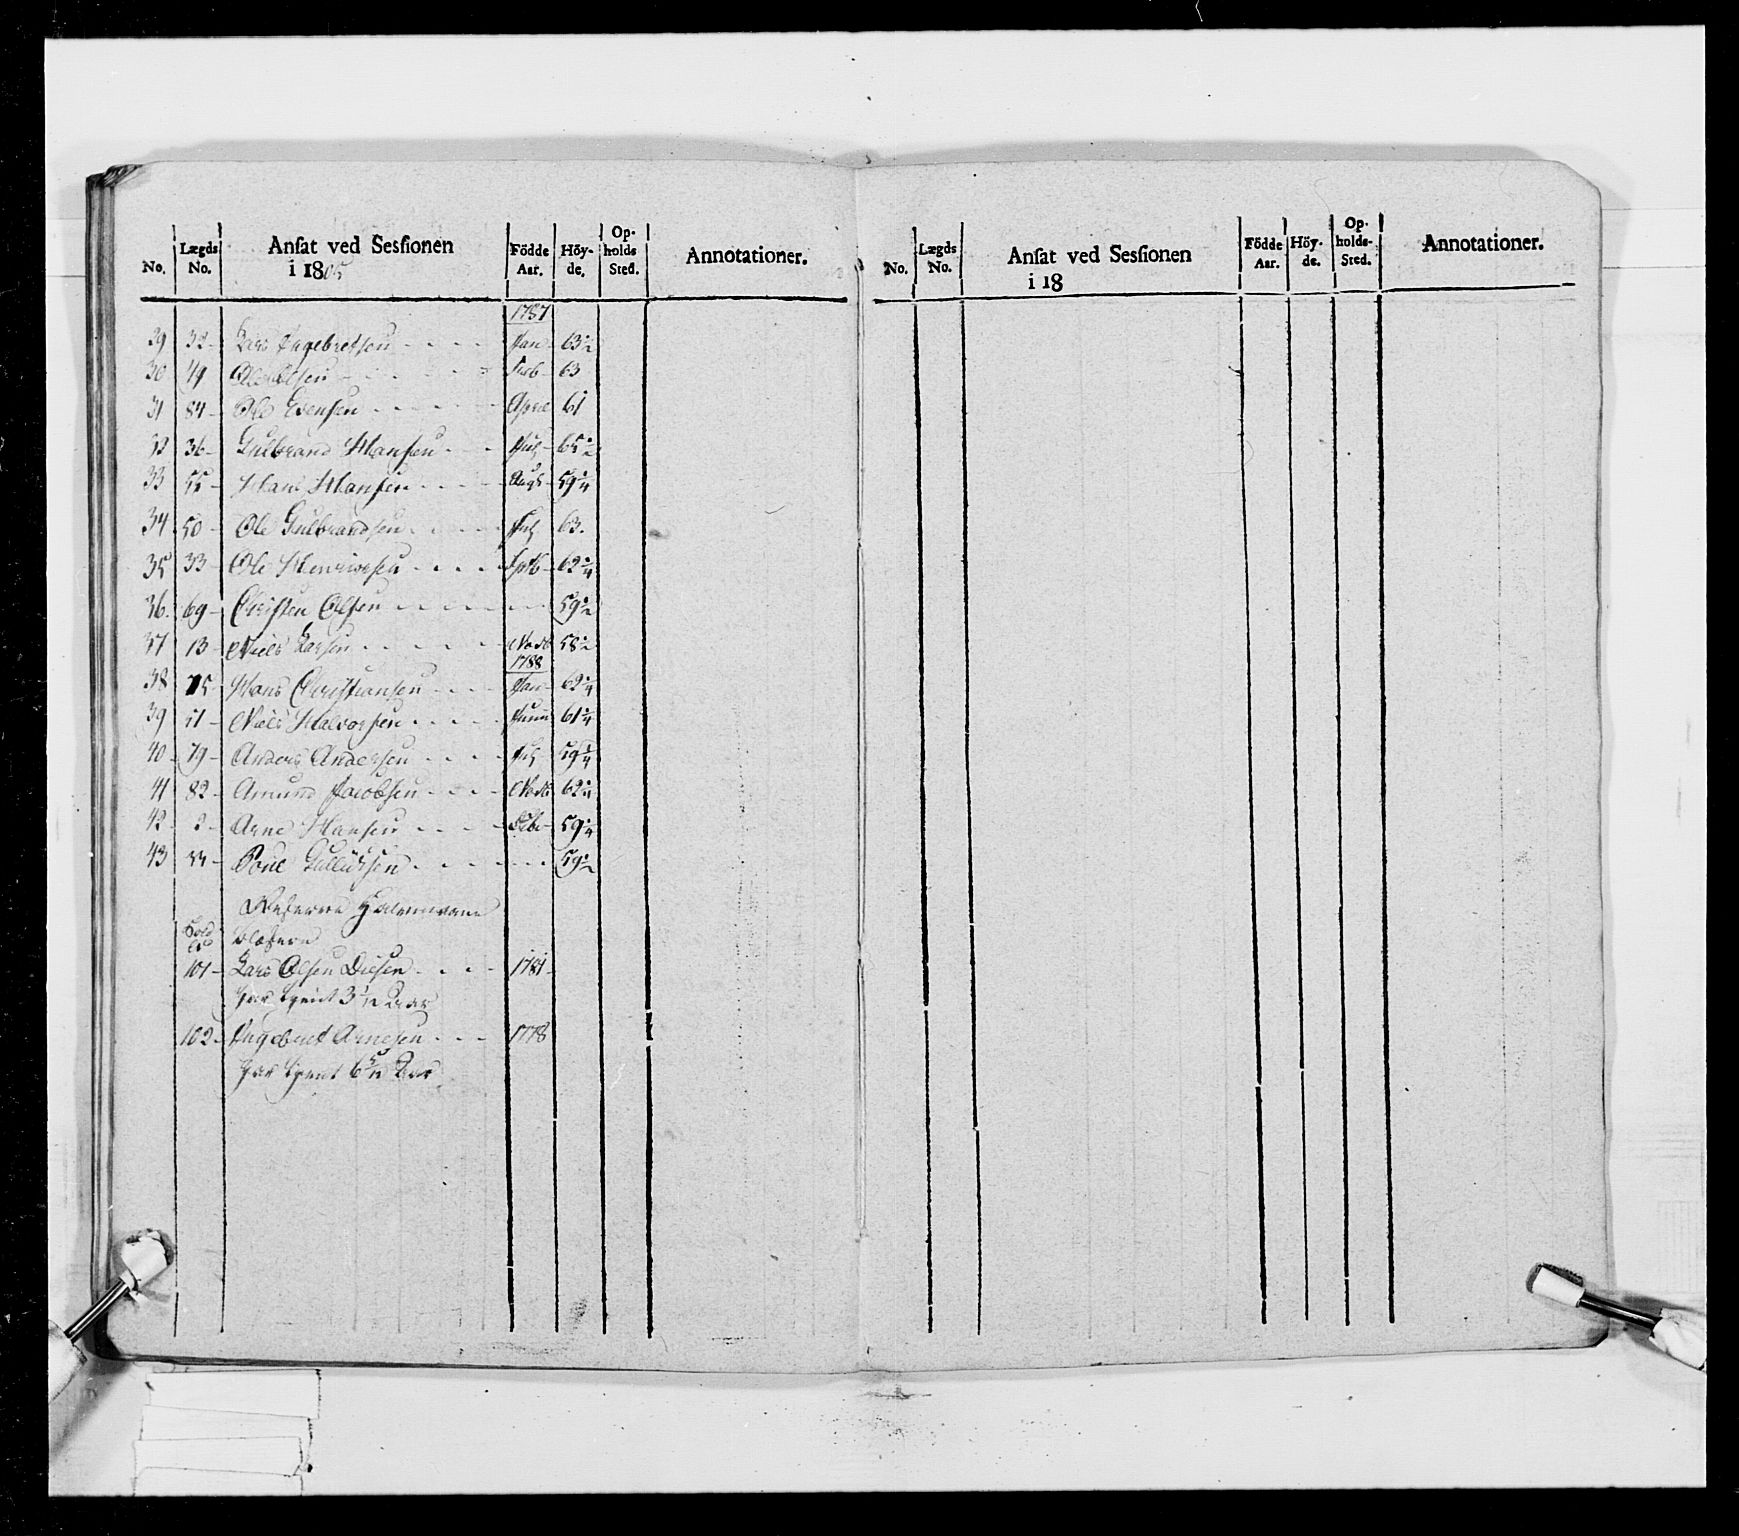 No. Lægds No. Ansat ved Sessionen i 1805 Födde Aar. Höy-de. Op-holds Sted. Annotationer.
1787
29 32 Lars Ingebretsen Jan 63 1/2
30 49 Ole Olsen Feb 63
31 84 Ole Evensen April 61
32 36 Gulbrand Hansen July 65 1/2
33 Hans Hansen Augt
34 50 Ole Gulbrandsen July 63.
35 33 Ole Henricsen Sptb
36. 69 Christen Olsen 59 1/2
37 13 Niels Larsen Novb 58 1/2
1788
38 15 Hans Christiansen Jan
39 Niels Halvorsen Juni
40 79 Anders Andersen July
41 82 Amund Jacobsen Novb
42 Arne Hansen
43 Poul 59 1/2
Reserve
101 Lars Olsen 1781
har tient 3 1/2 Aar
102 Ingebret Arnesen 1778
har tient Aar
No. Lægds No. Ansat ved Sessionen i 18 Födde Aar. Höy-de. Op-holds-Sted. Annotationer.